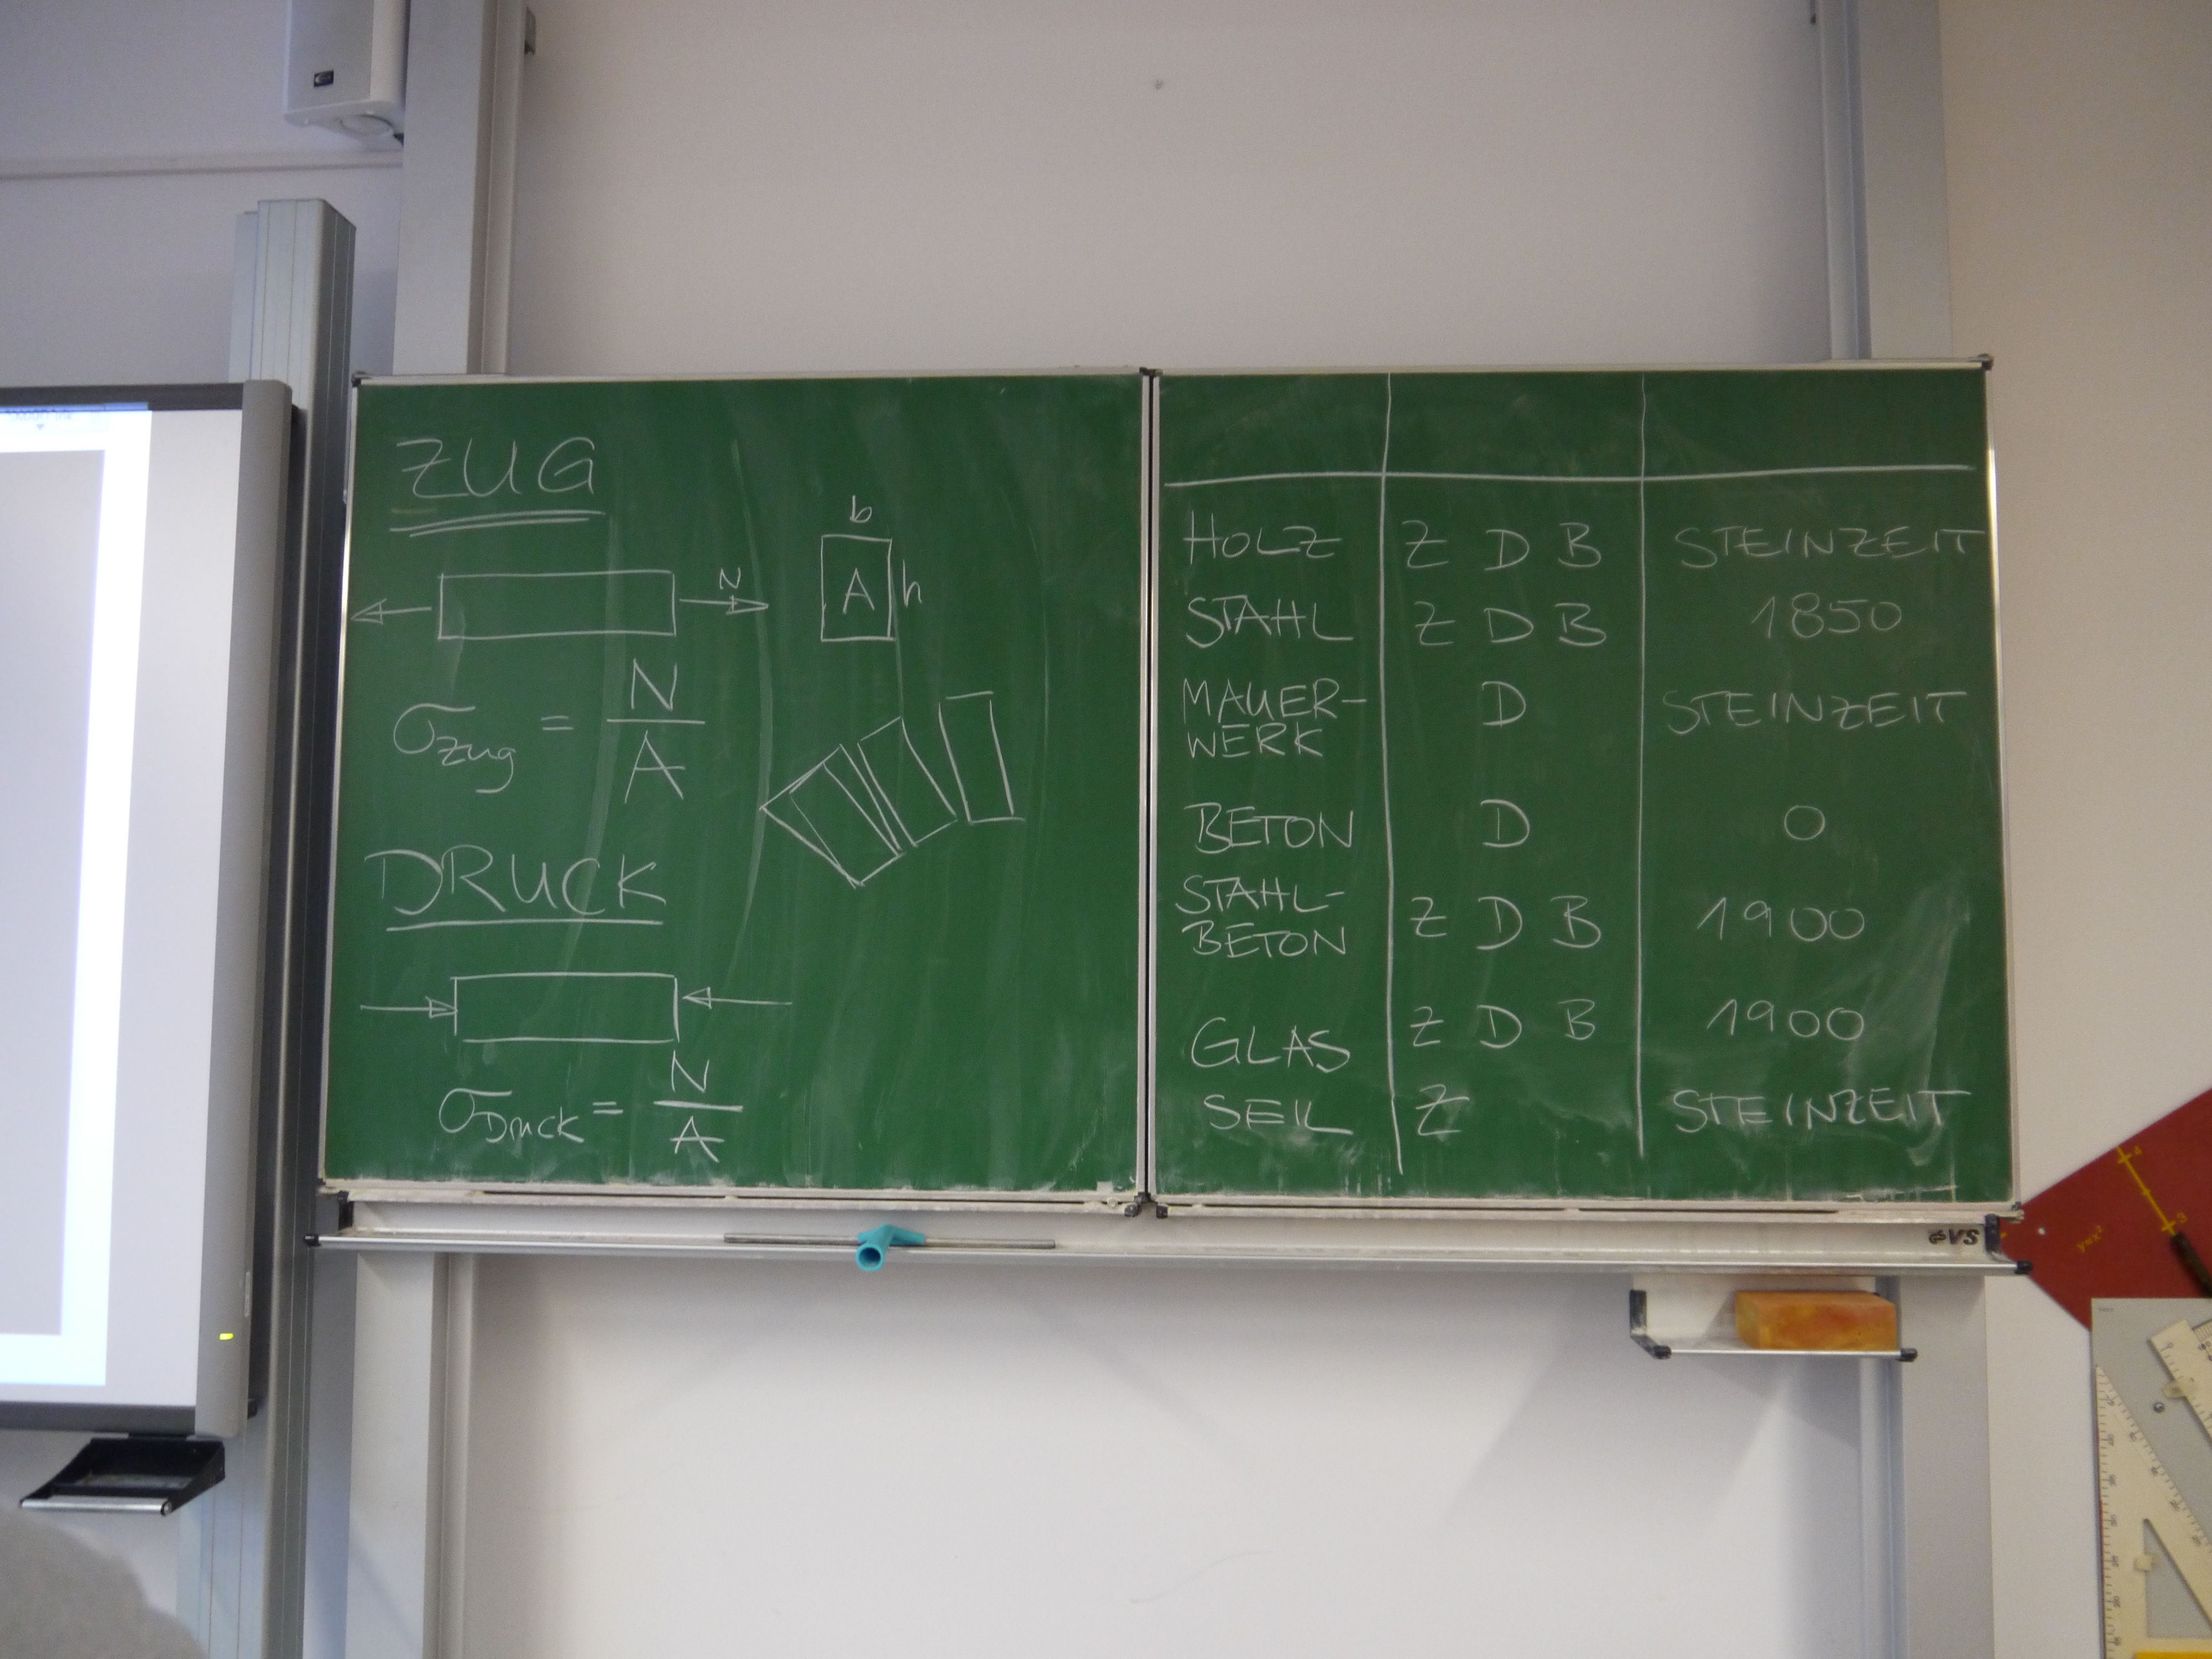 ZUG
b
A h
N
σZug = N/A
DRUCK
σDruck = N/A
HOLZ Z D B STEINZEIT
STAHL Z D B 1850
MAUER-
WERK D STEINZEIT
BETON D 0
STAHL-
BETON Z D B 1900
GLAS Z D B 1900
SEIL Z STEINZEIT
VS
y=x²